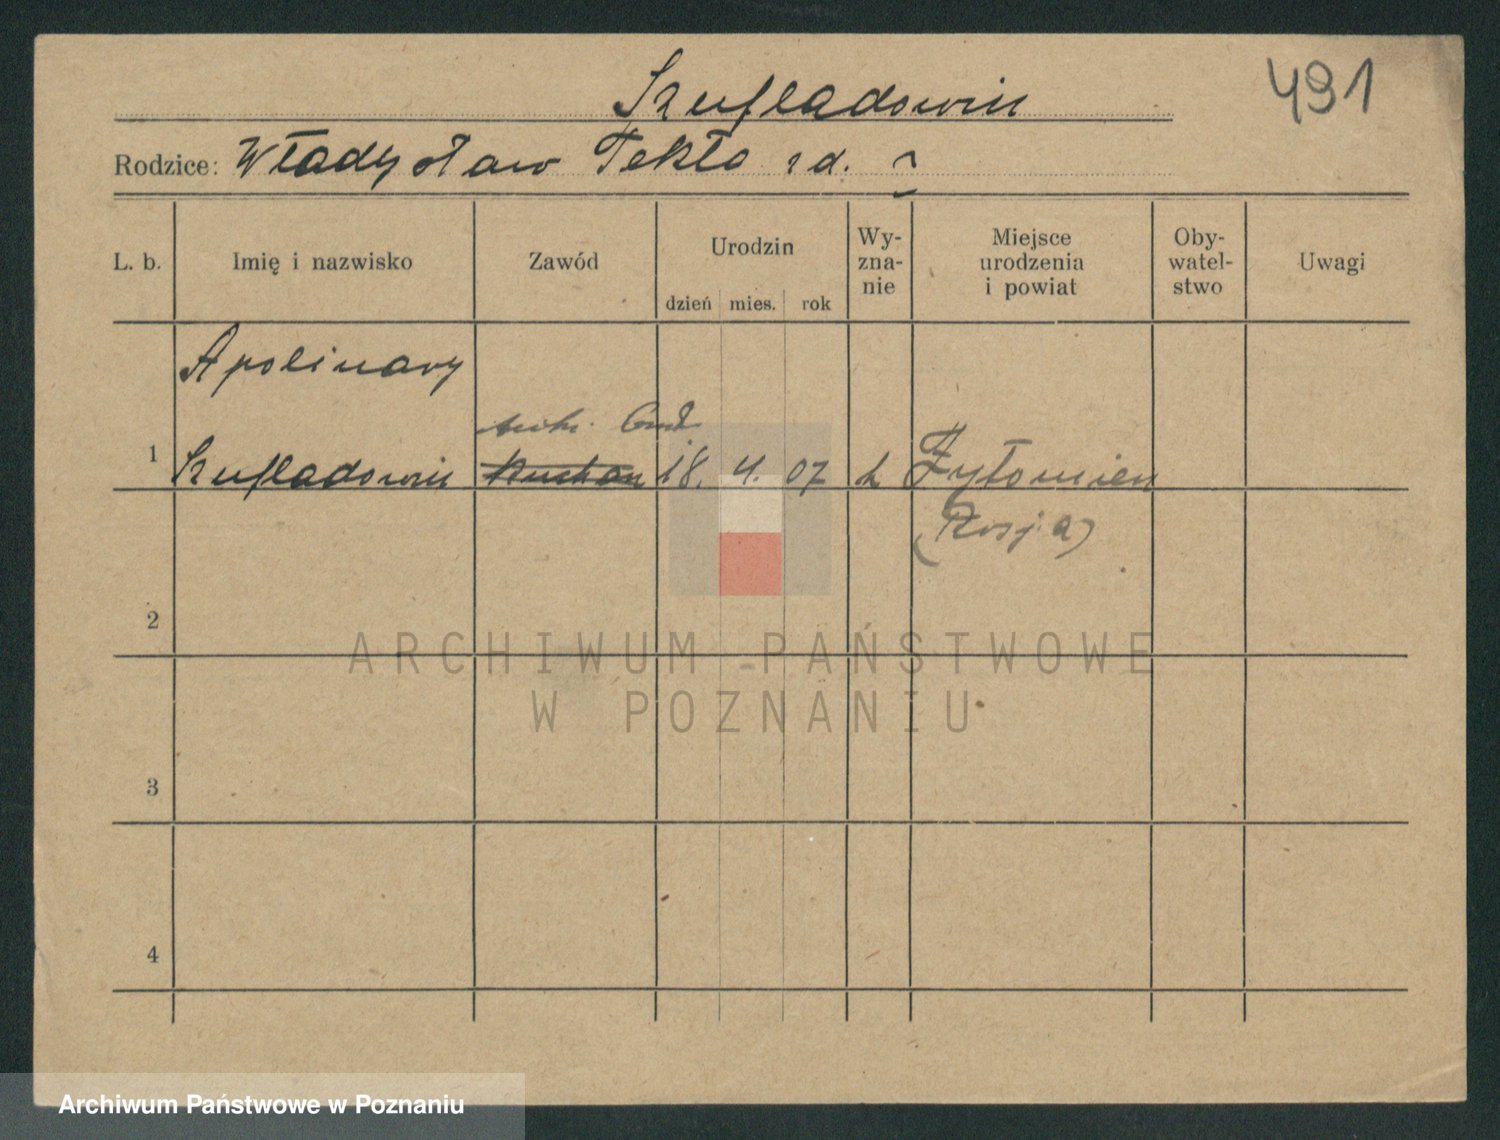 Szufladowicz
491
Rodzice: Władysław Tekla zd. ?
L. b. Imię i nazwisko Zawód Urodzin dzień mies. rok Wy-zna-nie Miejsce urodzenia i powiat Oby-watel-stwo Uwagi
Apolinary
1 Szufladowicz 18. 4. 07 Żytomierz
(Rosja)
2
3
4
ARCHIWUM PAŃSTWOWE
W POZNANIU
Archiwum Państwowe w Poznaniu